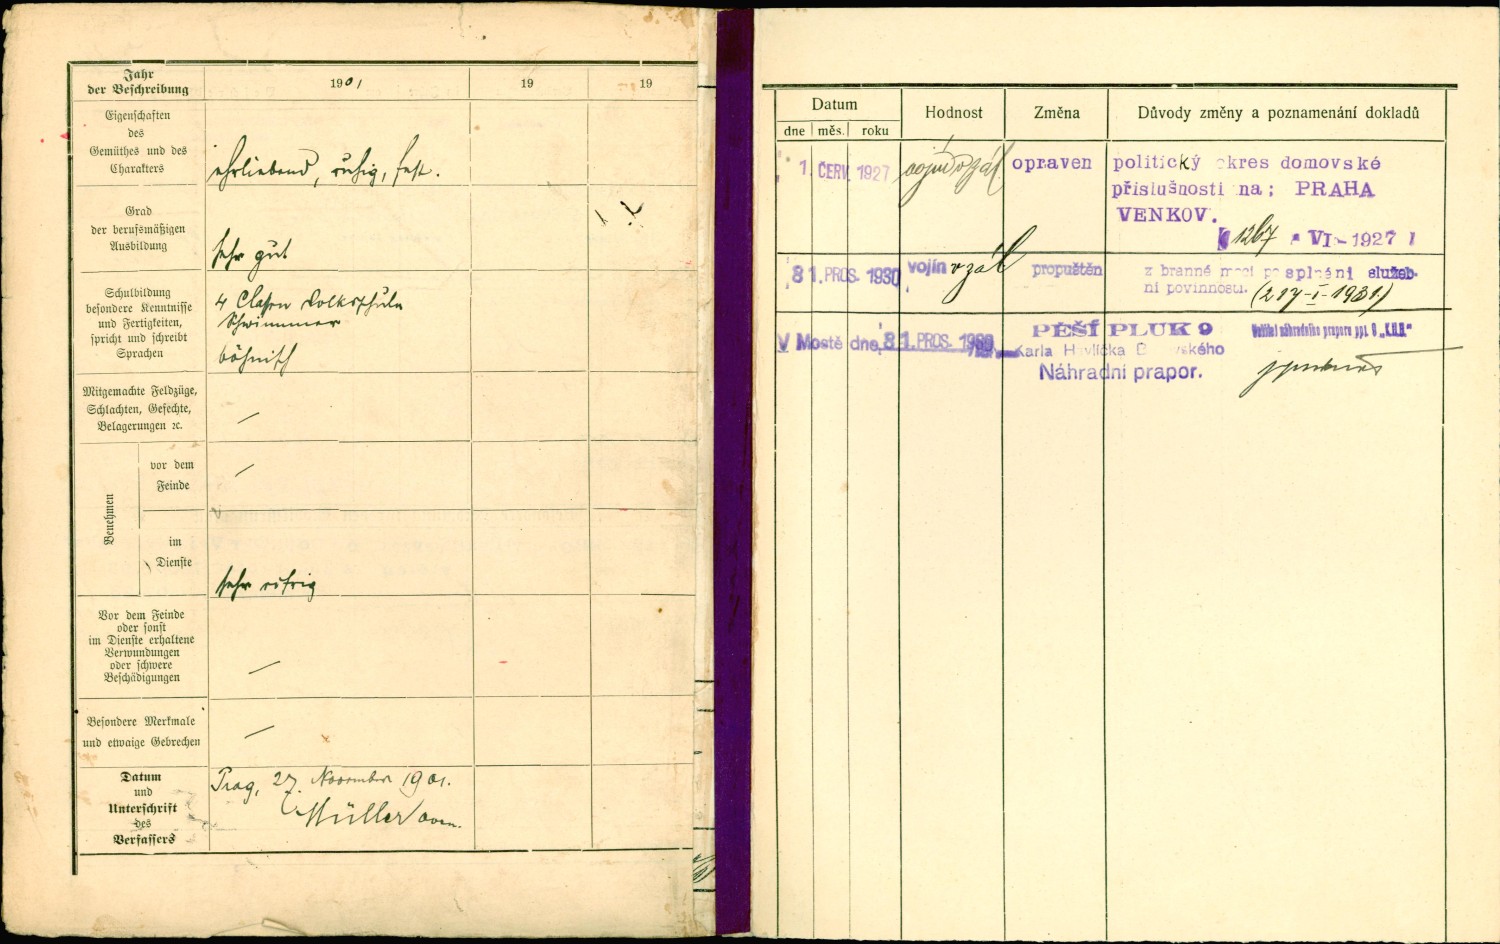 Jahr
der Beschreibung
1901
19
19
Eigenschaften
des
Gemüthes und des
Charakters
ehrliebend, ruhig, fest.
Grad
der berufsmäßigen
Ausbildung
sehr gut
Schulbildung
besondere Kenntnisse
und Fertigkeiten,
spricht und schreibt
Sprachen
4 Classen Volksschule
Schwimmer
böhmisch
Mitgemachte Feldzüge,
Schlachten, Gefechte,
Belagerungen ꝛc.
—
Benehmen
vor dem
Feinde
—
im
Dienste
sehr eifrig
Vor dem Feinde
oder sonst
im Dienste erhaltene
Verwundungen
oder schwere
Beschädigungen
—
Besondere Merkmale
und etwaige Gebrechen
—
Datum
und
Unterschrift
des
Verfassers
Prag, 27. November 1901.
Müller
Datum
Hodnost
Změna
Důvody změny a poznamenání dokladů
dne měs. roku
1. ČERV. 1927 vojín v zál opraven politický okres domovské
příslušnosti na; PRAHA
VENKOV.
1267 VI - 1927
31. PROS. 1930 vojín v zál propuštěn z branné moci po splnění služeb-
ní povinnosti. (217-I-1931.)
V Mostě dne, 31. PROS. 1930
PĚŠÍ PLUK 9
Karla Havlíčka Borovského
Náhradní prapor.
Velitel náhradního praporu pp. 9 „K.H.B“